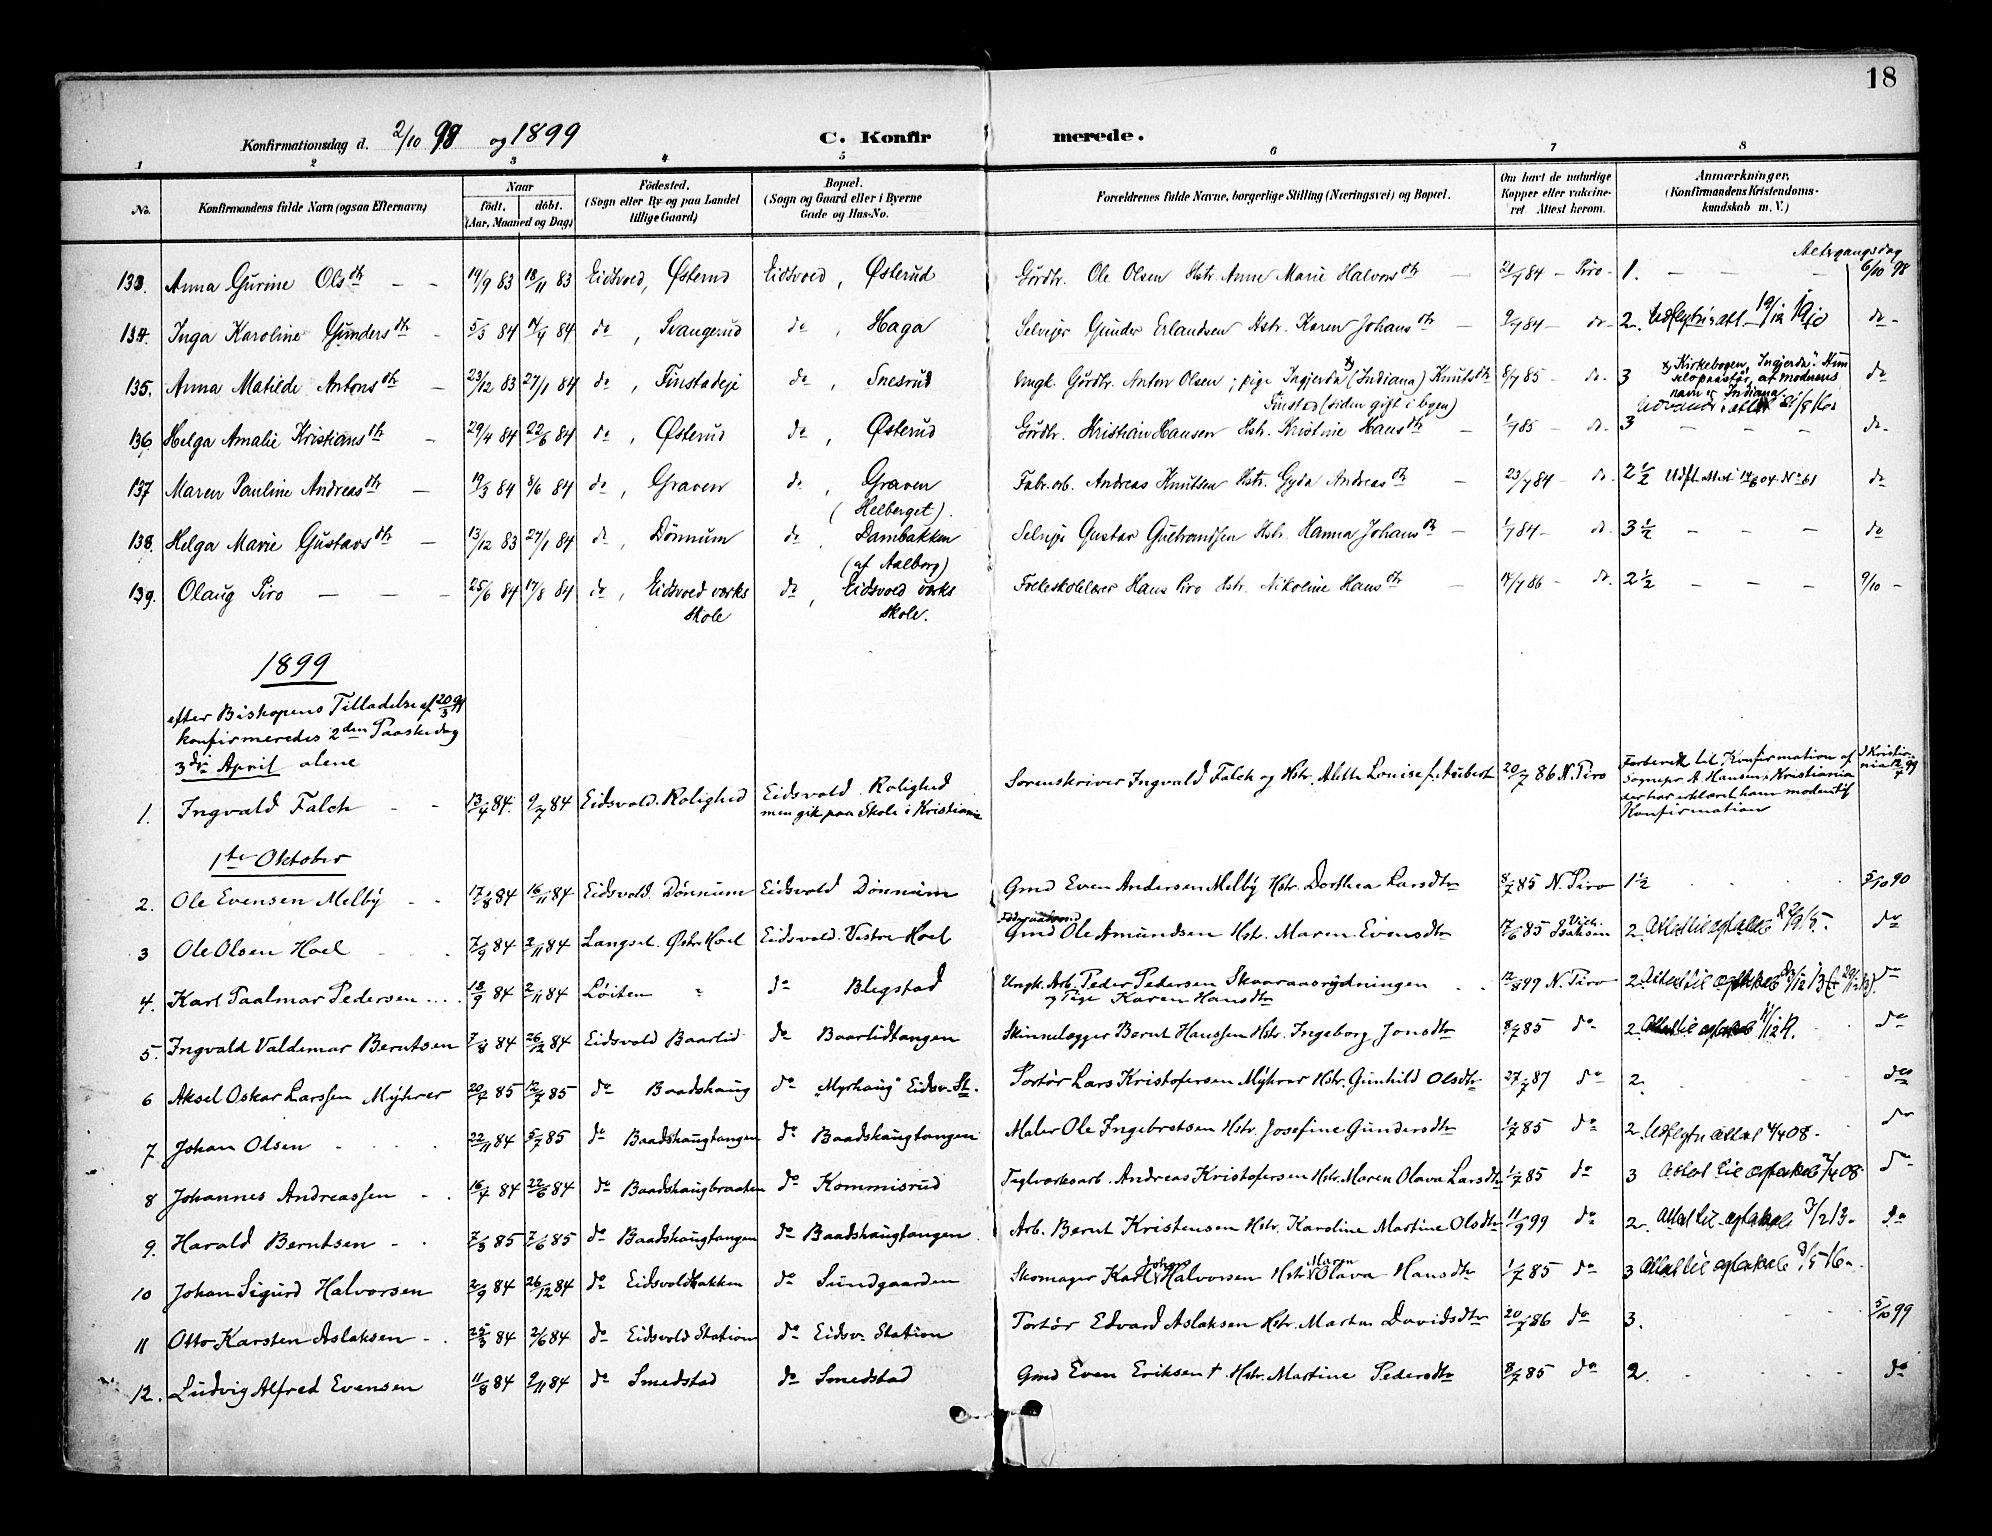 18
Konfirmationsdag d. 2/10 98 og 1899 C. Konfirmerede.
1 2 3 4 5 6 7 8
No. Konfirmandens fulde Navn (ogsaa Efternavn) Naar födt. döbt. (Aar, Maaned og Dag) Födested. (Sogn eller By og paa Landet tillige Gaard) Bopæl. (Sogn og Gaard eller i Byerne Gade og Hus-No. Forældrenes fulde Navne, borgerlige Stilling (Næringsvei) og Bopæl. Om havt de naturlige Kopper eller vaccineret Attest herom. Anmærkninger, (Konfirmandens Kristendomskundskab m. V.)
133. Anna Gurine Olsdtr - - 14/9 83 18/11 83 Eidsvold, Østerud Eidsvold, Østerud Gårdbr. Ole Olsen Hstr. Anne Marie Halvorsdtr - 21/7 84 - Piro - 1. - - - Altergangsdag 6/10 98
134. Inga Karoline Gundersdtr - 5/3 84 14/4 84 do, Svangerud do, Haga Selveier Gunder Erlandsen Hstr. Karen Johansdtr - 9/7 84 - do - 2. Udflytn. att. 19/12 1910 do -
135. Anna Matilde Antonsdtr - 23/12 83 27/1 84 do, Finstadeje do Snesrud Ungk. Gårdbr. Anton Olsen; pige Ingjerda x) (Indiana) Knutsdtr
Finstad (siden gift i byen) 8/7 85 - do - 3 x) Kirkebogen "Ingjerda". Hun selv paastår, at moderens navn er Indiana. do
136. Helga Amalie Kristiansdtr - 29/4 84 22/6 84 do, Østerud do, Østerud Gårdbr. Kristian Hansen Hstr. Kristine Hansdtr - 1/7 85 - do - 3 - - - do -
137 Maren Pauline Andreasdtr - 19/3 84 8/6 84 do, Graven do, Graven
(Helberget). Fabr.arb. Andreas Knutsen Hstr. Gyda Andreasdtr - 23/7 84 - do - 2 1/2 do
138. Helga Marie Gustavsdtr - 13/12 83 27/1 84 do, Dönnum do. Dambakken
(af Aalborg) Selvejr Gustav Gulbrandsen Hstr. Hanna Johansdtr - 1/7 84 - do - 3 1/2 - - - do
139. Olaug Piro - - - 25/6 84 17/8 84 do, Eidsvold verks
skole do, Eidsvold verks
skole. Folkeskolelærer Hans Piro Hstr. Nikoline Hansdtr - 14/7 86 - do - 2 1/2 - - - 9/10 -
1899
efter Biskopens Tilladelse af 20/3 99
konfirmeredes 2den Paaskedag
3die April alene
1. Ingvald Falch - - 13/4 84. 9/7 84 Eidsvold. Rolighed Eidsvold. Rolighed
men gik paa Skole i Kristiania Sorenskriver Ingvald Falch og Hstr. Alette Louise f. Aubert 20/7 86 N. Piro Forberedt til Konfirmation af
Sognepr A. Hansen, Kristiania
der har erklæret ham moden til
Konfirmation
1te Oktober
2. Ole Evensen Melby - 17/8 84 16/11 84 Eidsvold. Dönnum Eidsvold Dönnum Gmd Even Andersen Melby Hstr. Dorthea Larsdtr 8/7 85 N. Piro 1 1/2 5/10 90
3 Ole Olsen Hoel 7/9 84 2/11 84 Langset. Østre Hoel Eidsvold. Vestre Hoel Gmd Ole Amundsen Hstr. Maren Evensdtr 17/6 85 2. do
4. Karl Paalmar Pedersen 18/9 84 2/11 84 Löiten " do Blegstad Ungk. Arb. Peder Pedersen Skaaraasrydningen
og Pige Karen Hansdtr 12/8 99 N. Piro 2. do
5. Ingvald Valdemar Berntsen 7/8 84 26/12 84 Eidsvold Baarlid do Baarlidtangen Skinnelægger Bernt Hanssen Hstr. Ingeborg Jonsdtr 8/7 85 do 2. do
6 Aksel Oskar Larssen Myhrer 20/2 85 12/7 85 do Baadshaug do "Myrhaug" Eidsv. St. Portör Lars Kristofersen Myhrer Hstr. Gunhild Olsdtr 27/7 87 do 2. do
7. Johan Olsen 22/11 84 5/7 85 do Baadshaugtangen do Baadshaugtangen Maler Ole Ingebretsen Hstr. Josefine Gundersdtr 1/7 85 do 2. Udflytn Attest 4/4 08. do
8 Johannes Andreassen - - 16/4 84 22/6 84 do Baadshaugbraaten do Kommisrud Teglverksarb. Andreas Kristofersen Hstr. Maren Olava Larsdtr 1/7 85 do 3 do
9. Harald Berntsen - - 7/3 85 7/6 85 do Baadshaugtangen do Baadshaugtangen. Arb. Bernt Kristensen Hstr. Karoline Martine Olsdtr 11/9 99 do 2. do
10 Johan Sigurd Halvorsen 2/9 84 26/12 84 do Eidsvoldbakken do Sundgaarden Skomager Karl Johan Halvorsen Hstr. Maren Olava Hansdtr 1/7 85 do 3
11 Otto Karsten Aslaksen - - 25/3 84 2/6 84 do Eidsvold Station do Eidsv. Station Portör Edvard Aslaksen Hstr. Martea Davidsdtr 20/7 86 do 3. 5/10 99
12. Ludvig Alfred Evensen 11/8 84 9/11 84 do Smedstad do Smedstad Gmd Even Eriksen † Hstr. Martine Pedersdtr 8/7 85 do 2. do